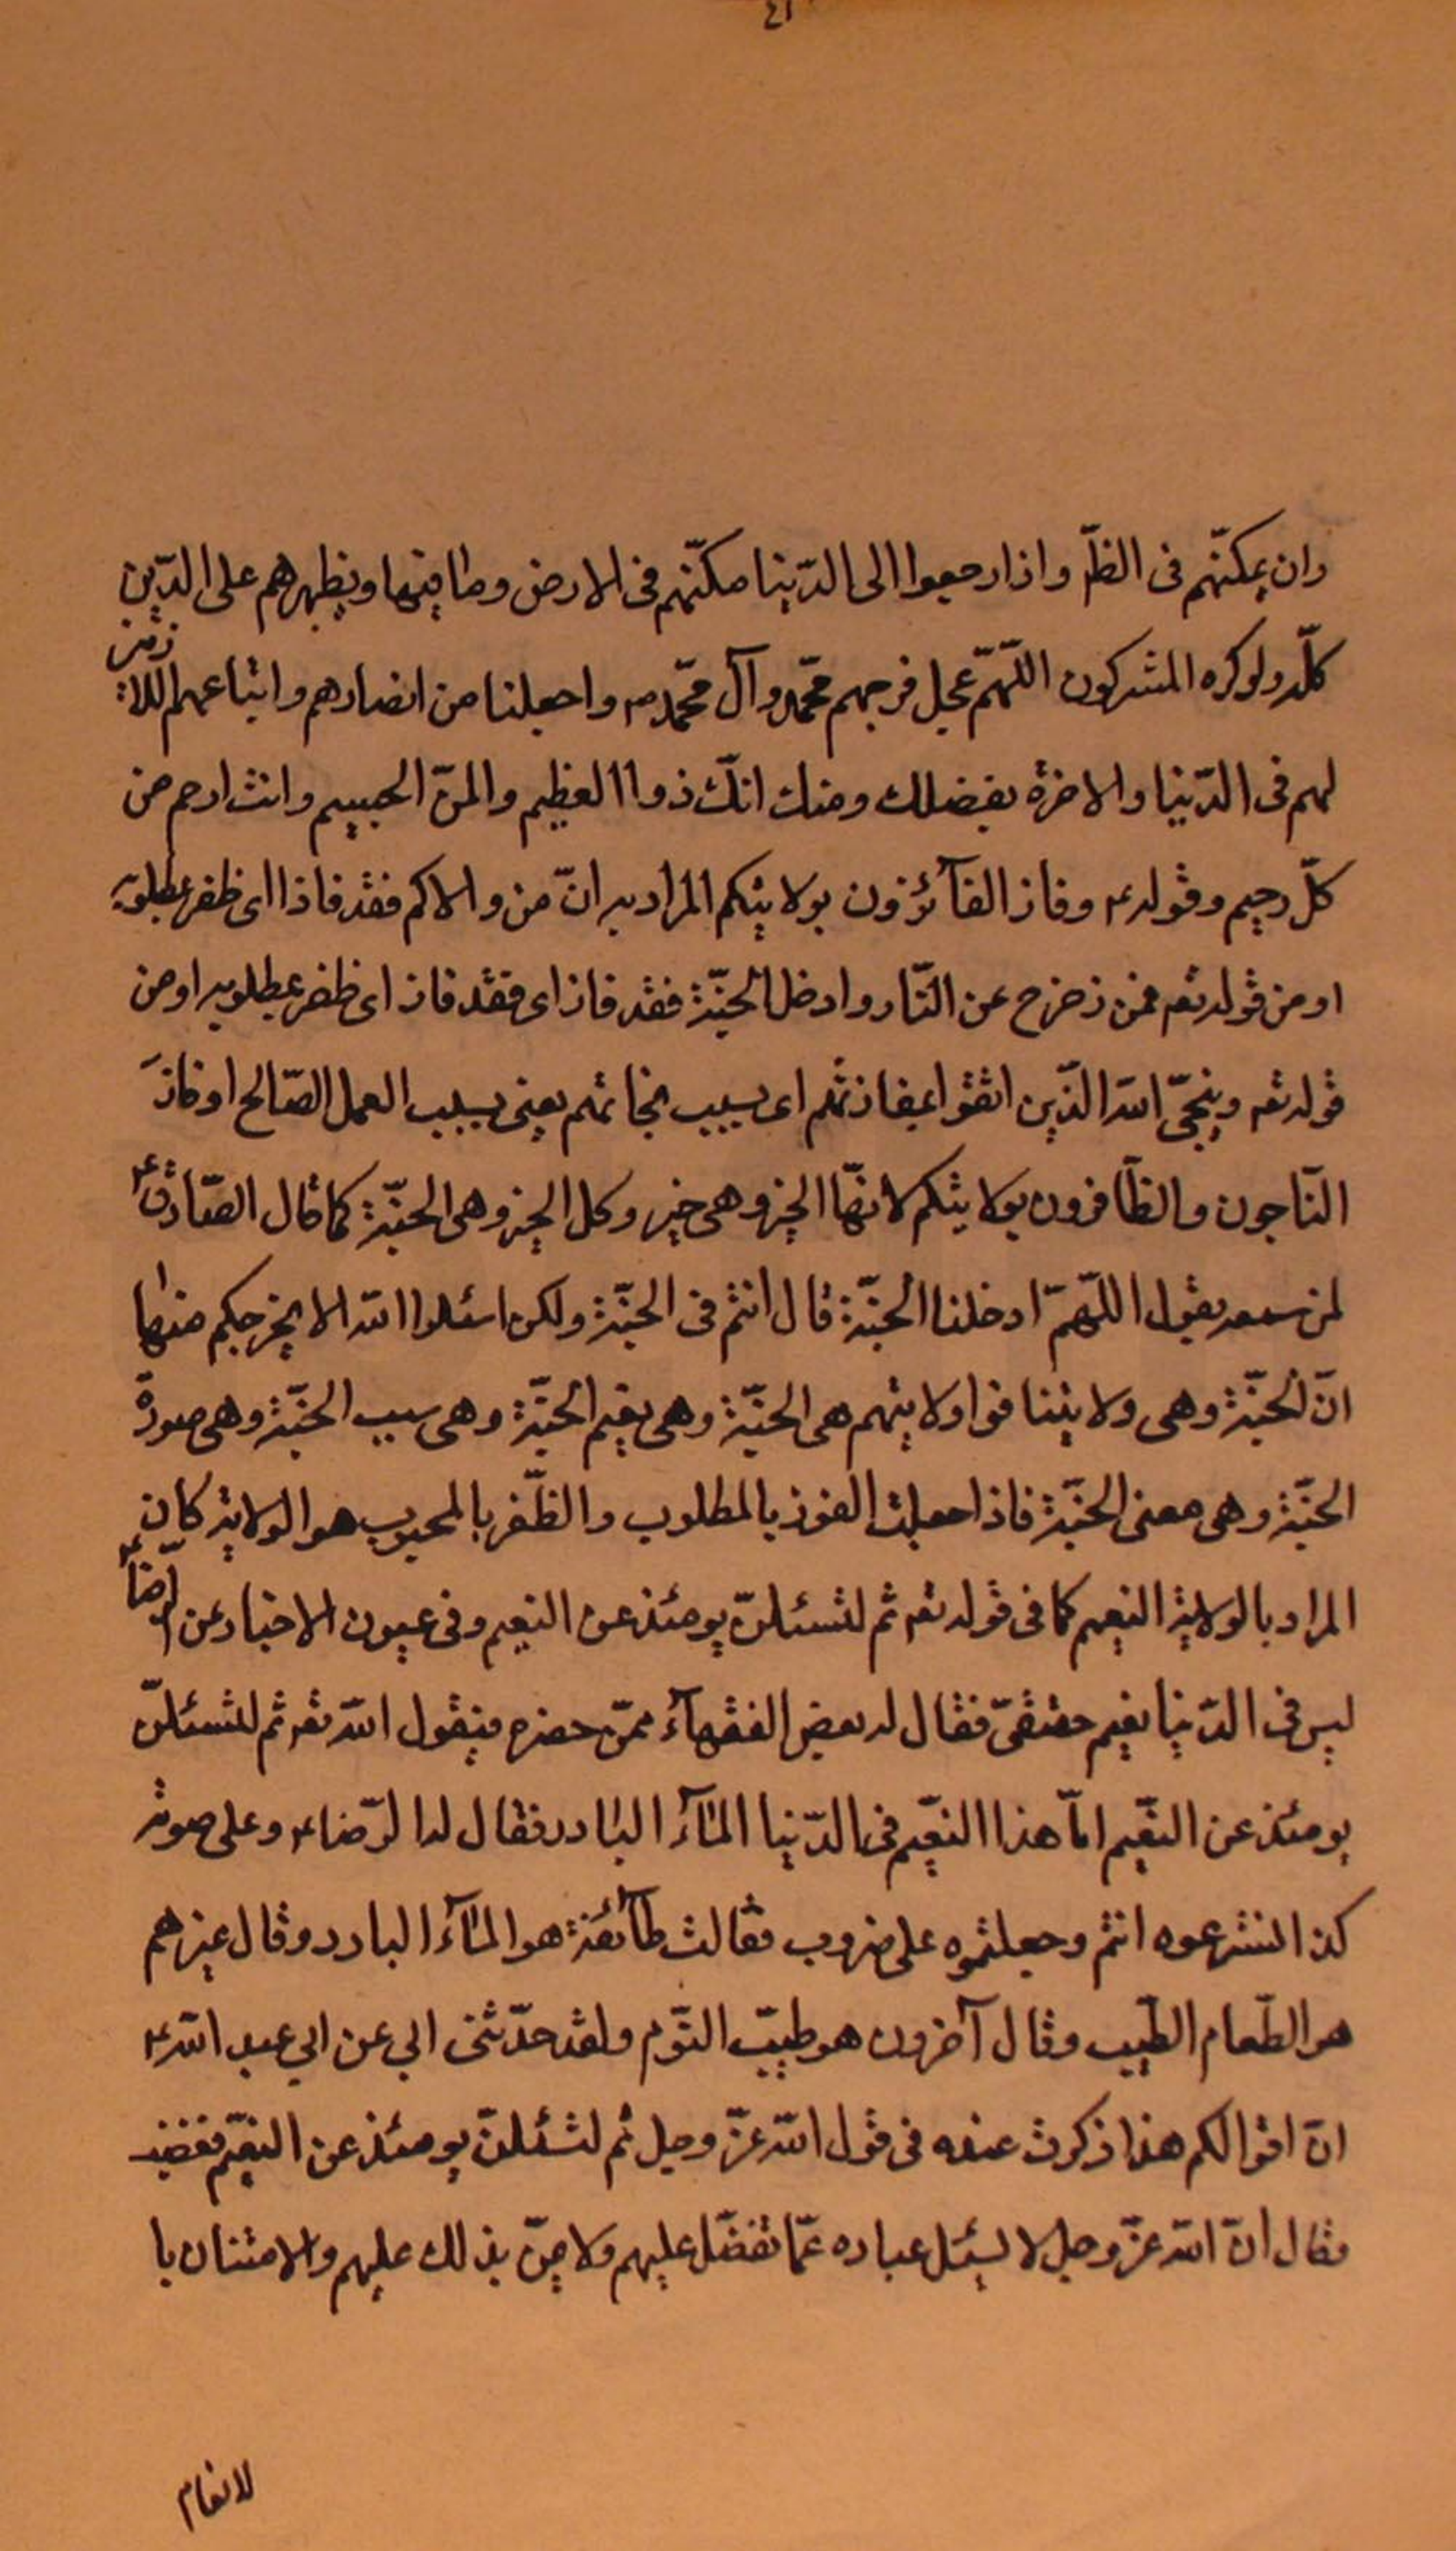 ٤١
وان يمكنّهم فى الظلّ واذا رجعوا الى الدّنيا مكنّهم فى الارض وما فيها ويظهرهم على الدّين
كلّه ولو كره المشركون اللّهمّ عجل فرجهم محمّد وآل محمّد ص واجعلنا من انصارهم واتباعهم اللازمين
لهم فى الدّنيا والاخرة بفضلك ومنك انّك ذوا العظيم والمنّ الجسيم وانت ارحم من
كلّ رحيم وقوله ع وفاز الفآئزون بولايتكم المراد به انّ من والاكم فقد فاز اى ظفر بمطلوبه
او من قوله تعم فمن زحزح عن النّار وادخل الجنّة فقد فاز اى فقد فاز اى ظفر بمطلوبه او من
قوله تعم وينجّى الله الذّين اتقوا بمفازتهم اى بسبب نجاتهم يعنى بسبب العمل الصّالح او فاز
النّاجون والظّافرون بولايتكم لانّها الخير وهى خير وكل الخير وهى الجنّة كما قال الصّادق ع
لمن سمعه يقول اللّهمّ ادخلنا الجنّة قال انتم فى الجنّة ولكن اسئلوا الله الا يخرجكم منها
انّ الجنّة وهى ولايتنا فوا ولايتهم هى الجنّة وهى نعيم الجنّة وهى سبب الجنّة وهى صورة
الجنّة وهى معنى الجنّة فاذا جعلت الفوز بالمطلوب والظّفر بالمحبوب هو الولاية كان
المراد بالولاية النعيم كما فى قوله تعم ثم لتسئلنّ يومئذ عن النعيم وفى عيون الاخبار عن الرّضا ع
ليس فى الدّنيا نعيم حقيقىّ فقال له بعض الفقهآء ممّن حضره فيقول الله تعم ثم لتسئلنّ
يومئذ عن النّعيم امّا هذا النعيّم فى الدّنيا المآء البارد فقال له الرّضا ع وعلى صوته
كذا فسّرتموه انتم وجعلتموه على ضروب فقالت طآئفة هو المآء البارد وقال غيرهم
هو الطّعام الطّيب وقال آخرون هو طيب النّوم ولقد حدّثنى ابي عن ابي عبد الله ع
انّ اقوالكم هذا ذكرت عنده فى قول الله عزّ وجل ثم لتسئلنّ يومئذ عن النعيّم فغضب
وقال انّ الله عزّ وجل لا يسئل عباده عمّا تفضّل عليهم ولا يمنّ بذلك عليهم والامتنان با
لانعام